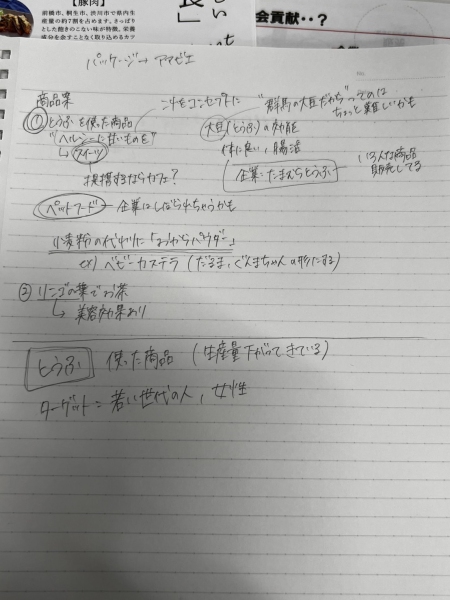 【豚肉】
前橋市、桐生市、渋川市で県内生
産量の約7割を占めます。さっぱり
とした飽きのこない味が特徴。栄養
成分を余すことなく取り込めるカツ
長」
しい
会貢献・・?
パッケージ→ アマビエ
商品案
これをコンセプトに "群馬の大豆だから"ってのは
ちょっと難しいかも
① とうふを使った商品
"ヘルシーに甘いものを"
↳ スイーツ
大豆(とうふ)の効能
体に良い, 腸活
提携するならカフェ?
企業:たまむらとうふ
いろんな商品
販売してる
ペットフード ー 企業にしばられちゃうかも
小麦粉の代わりに「おからパウダー」
ex) ベビーカステラ (だるま, ぐんまちゃんの形にする)
② リンゴの葉でお茶
↳ 美容効果あり
とうふ 使った商品 (生産量下がってきている)
ターゲット= 若い世代の人, 女性